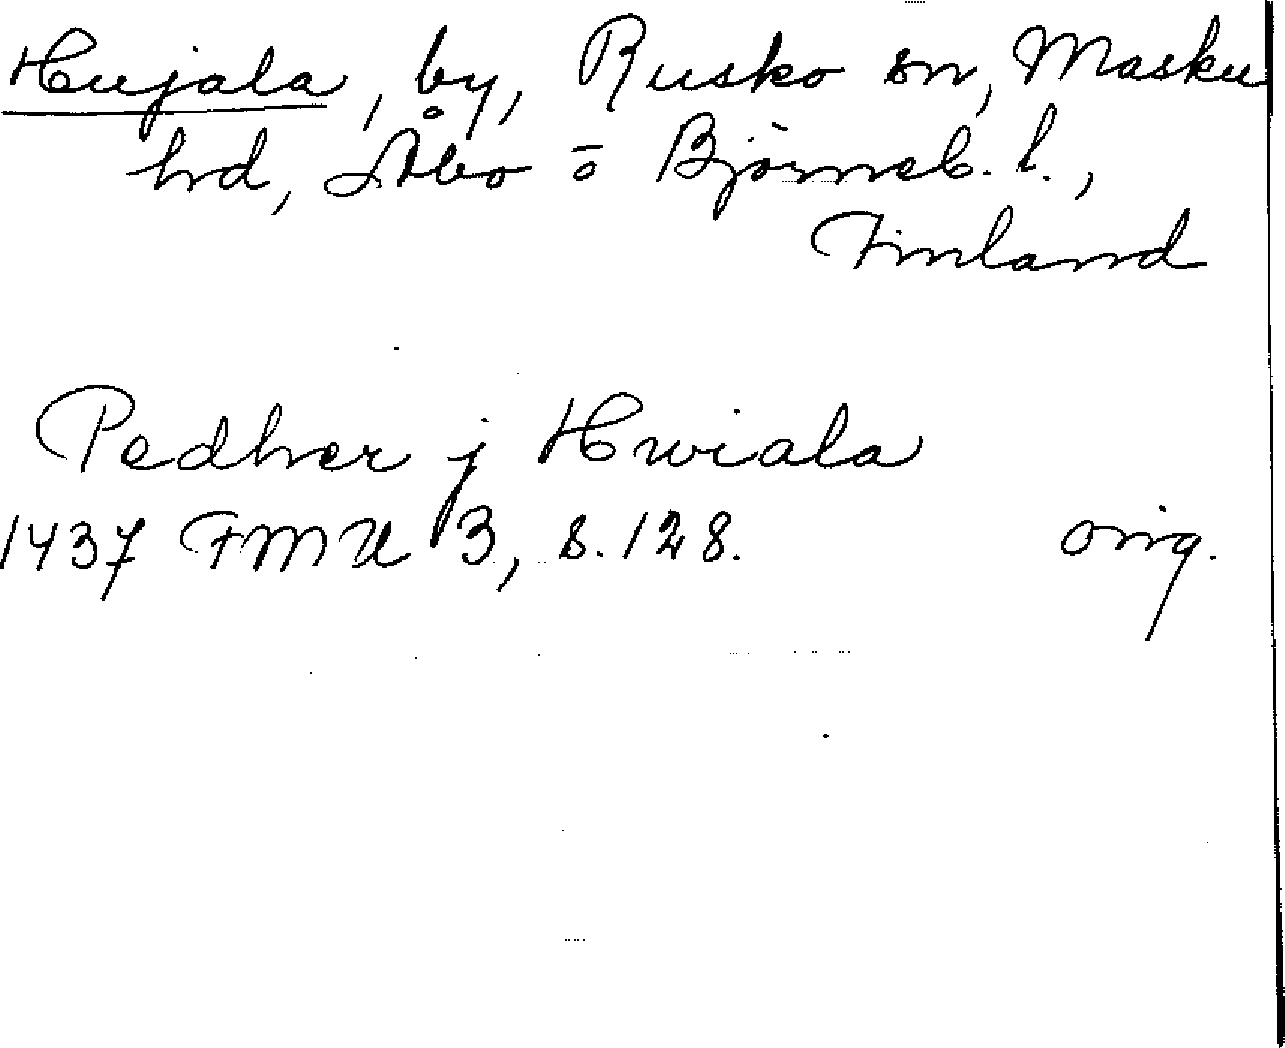 Hujala, by, Rusko sn, Masku
hrd, Åbo o Björneb. l.,
Finland
Pedher j Hwiala
1437 FMU 3, s. 128. orig.